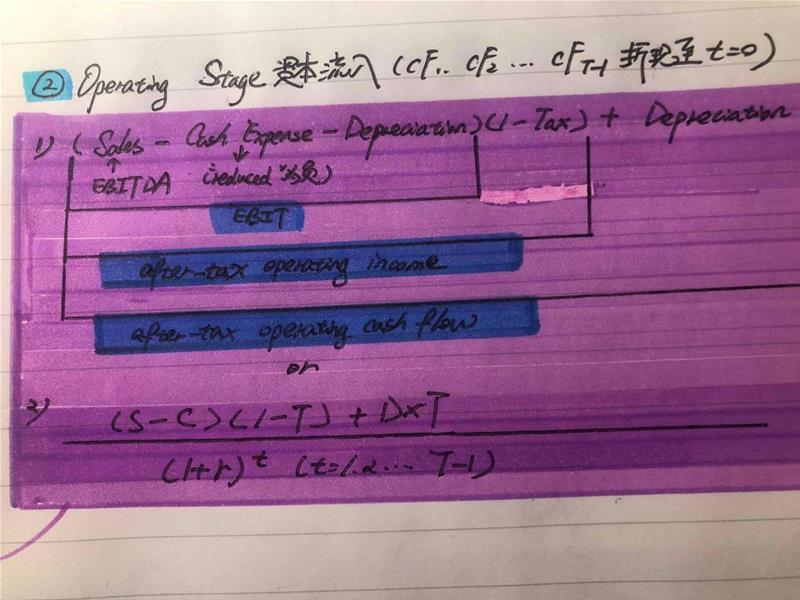 ② Operating Stage 资本流入 (CF₁.. CF₂ ... CF_T-1 折现至 t=0)
1) (Sales - Cash Expense - Depreciation)(1-Tax) + Depreciation
↑ ↓
EBITDA (reduced 为负)
EBIT
after-tax operating income
after-tax operating cash flow
or
2) (S-C)(1-T) + D×T
(1+r)^t (t=1.2... T-1)